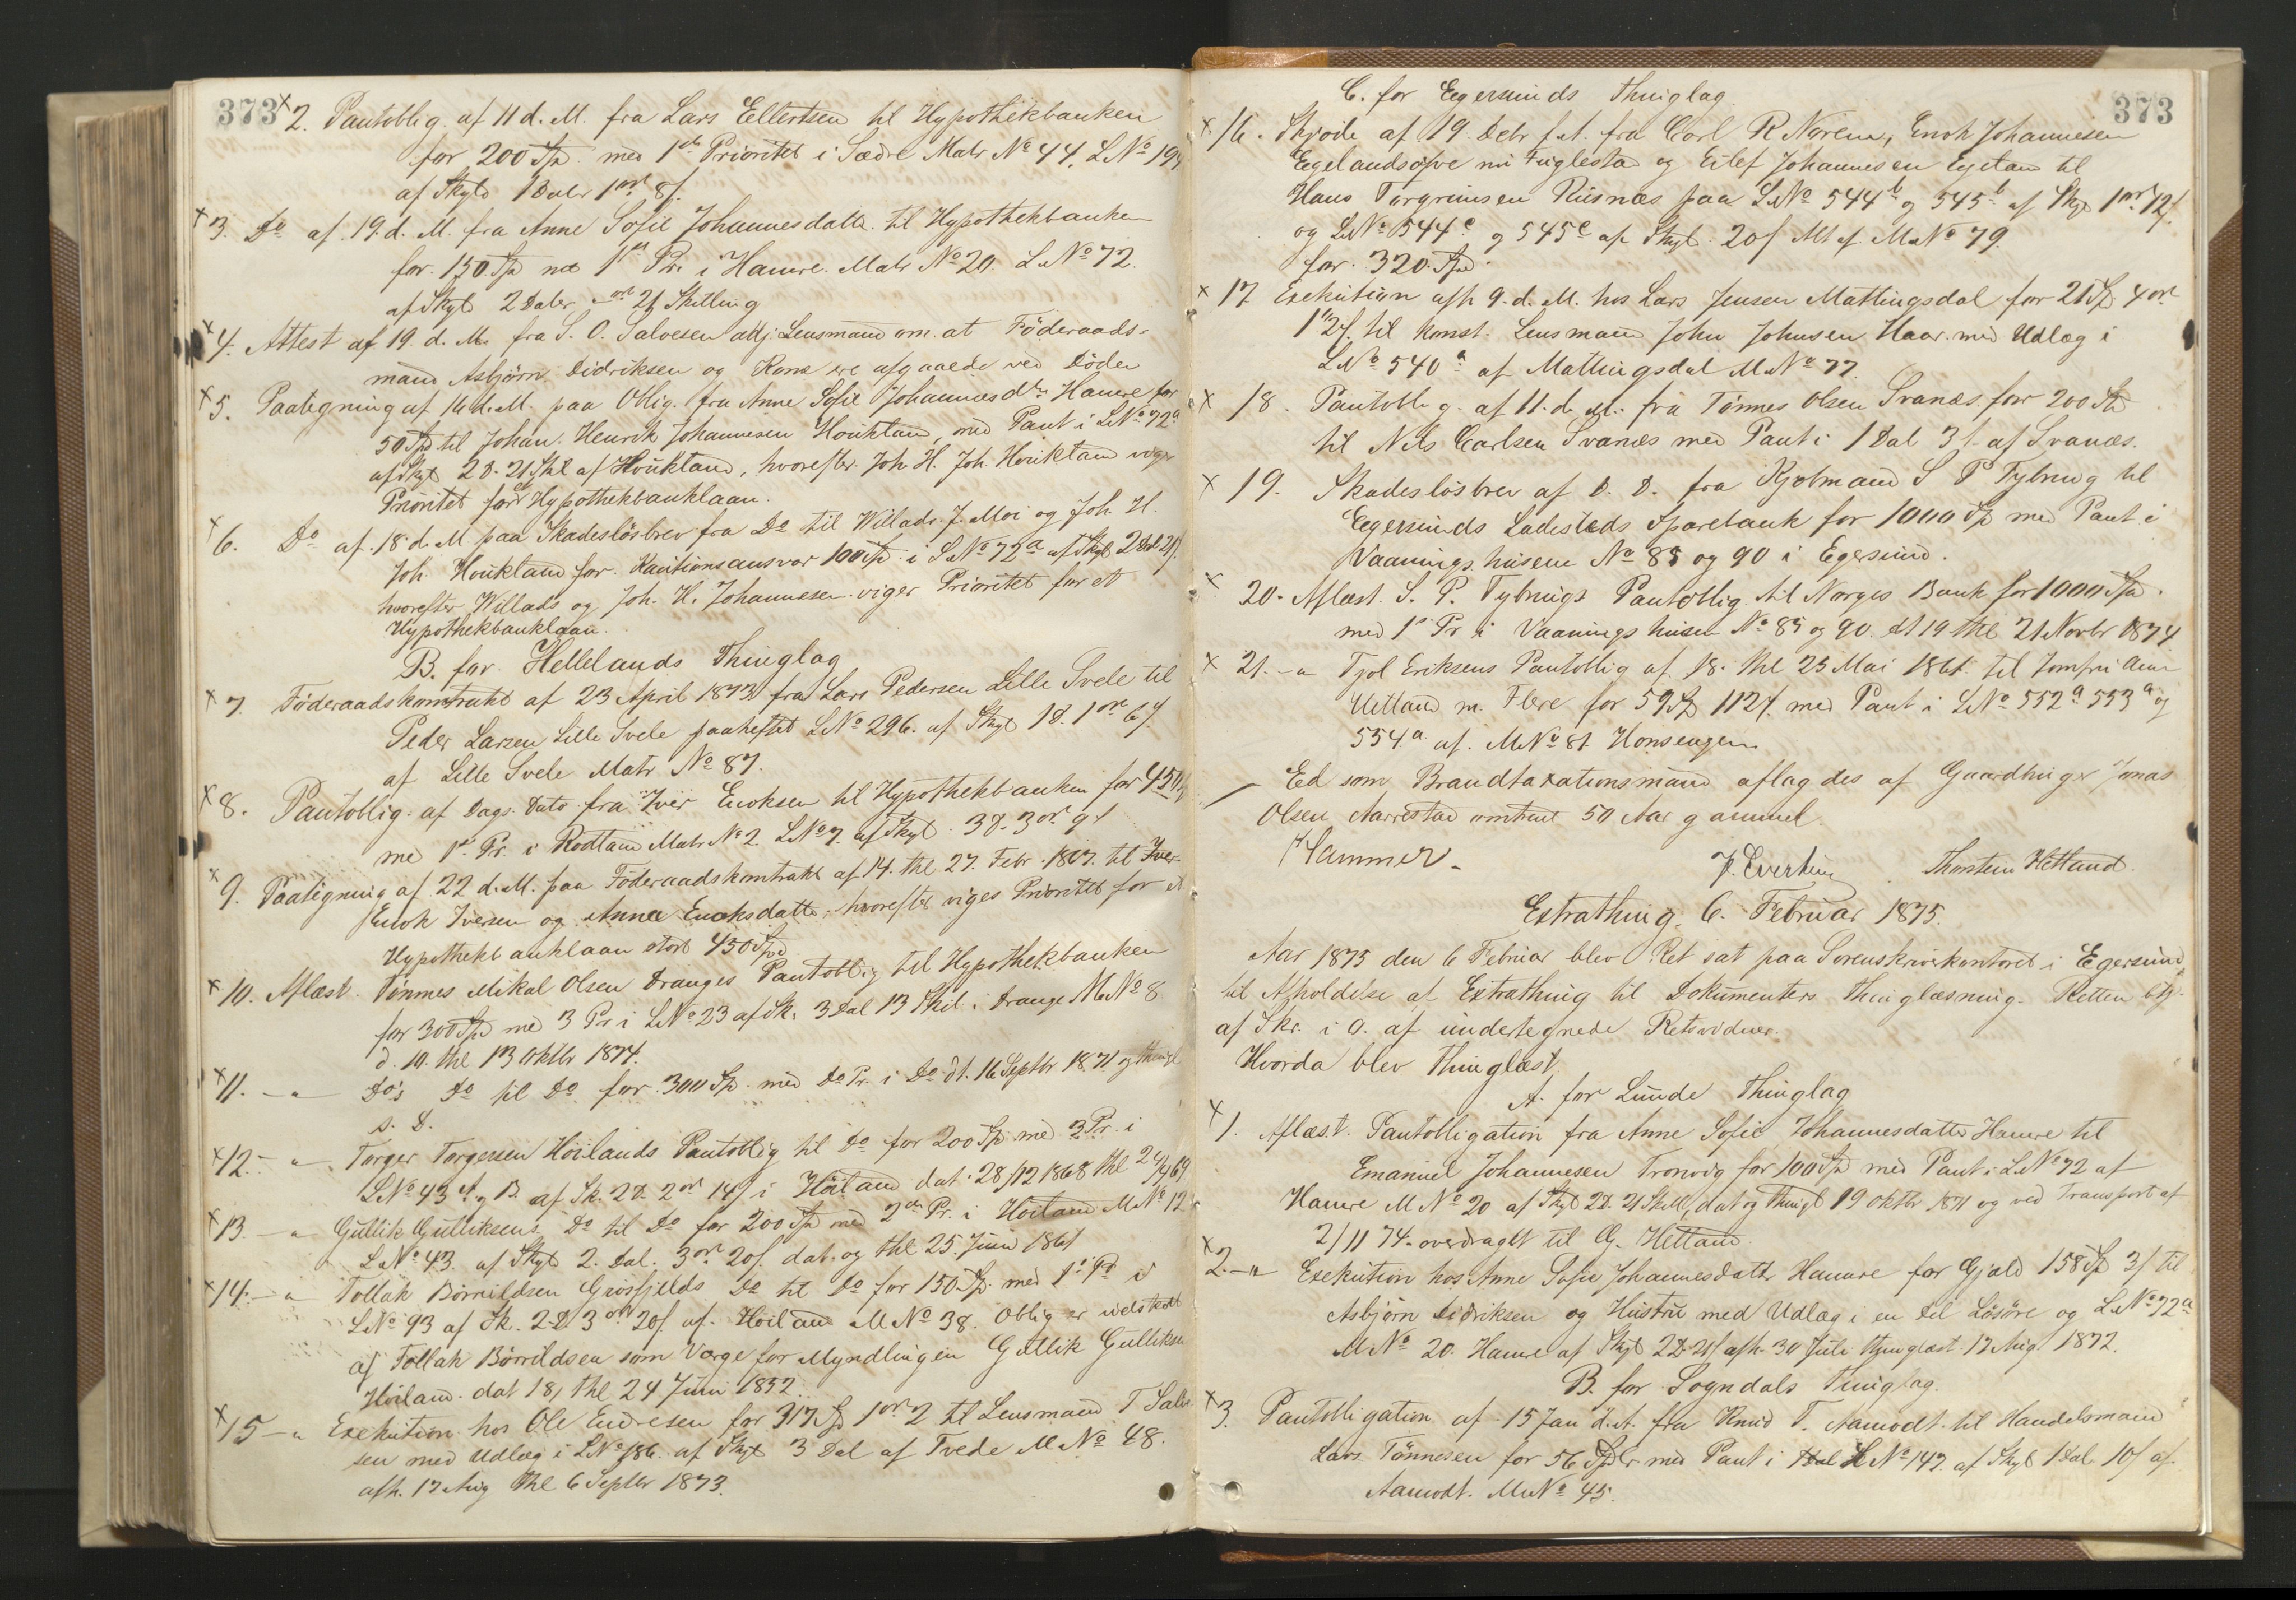 373
x 2. Pantoblig. af 11 d. M. fra Lars Ellertsen til Hypothekbanken
for 200 Spd. med 1ste Prioritet i Sædre Matr No 44. L No 199
af Skyld 1 Daler 1 ort 8 s.
x 3. Do af 19. d. M. fra Anne Sofie Johannesdatter til Hypothekbanken
for 150 Spd med 1st Pr. i Hamre. Matr No 20. L No 72.
af Skyld 2 Daler - ort 21 Skilling
x 4. Attest af 19. d. M. fra S. O. Salvesen adj. Lensmand om at Föderaads-
mand Asbjörn Didriksen og Kone ere afgaaede ved Döden
x 5. Paategning af 16 d. M. paa Oblig. fra Anne Sofie Johannesdtr Hamre for
50 Spd til Johan Henrik Johannesen Houkland, med Pant i L No 72a
af Skyld 2 D. 21 Skl af Houkland, hvorefter Joh. H. Joh. Houkland viger
Prioritet for et Hypothekbanklaan.
x 6. Do af 18 d. M paa Skadeslösbrev fra Do til Willads J. Moi og Joh. H.
Joh. Houkland for Kautionsansvar 100 Spd i L No 72a af Skyld 2 Dal 21 s.
hvorefter Willads og Joh. H. Johannesen viger Prioritet for et
Hypothekbanklaan.
B. for Hellelands Thinglag
x 7. Föderaadskontrakt af 23 April 1873 fra Lars Pedersen Lille Svele til
Peder Larsen Lille Svele paaheftet L No 296. af Skyld 1 D. 1 ort 6 s.
af Lille Svele Matr No 87.
x 8. Pantoblig. af Dags Dato fra Iver Enoksen til Hypothekbanken for 450
med 1st Pr. i Rodland Matr No 2. L No 7. af Skyld 3 D. 3 ort 9 s
x 9. Paategning af 22 d. M. paa Föderaadskontrakt af 14. thl 27. Febr. 1867. til
Enok Iversen og Anna Enoksdatter, hvorefter viges Prioritet for et
Hypothekbanklaan stort 450 Spd
x 10. Aflæst. Tönnes Mikal Olsen Dranges Pantoblig til Hypothekbanken
for 300 Spd med 3 Pr i L No 23 af Sk. 3 Dal 13 Skil. i Drange M No 8.
d. 10. thl 13 Oktbr 1874.
x 11. - " - Do's Do til Do for 300 Sp. med Do Pr. i Do dt. 16 Septbr 1871 og thingl
s. D.
x 12. - " - Torger Torgersen Höilands Pantoblig til Do for 200 Sp med 3 Pr. i
L No 43 A og B af Sk. 2 D. 2 ort 14 s i Höiland dat. 28/12 1868 thl 24/4 69
x 13. - " Gullik Gulliksens Do til Do for 200 Spd med 2den Pr. i Höiland M No 12
L No 43. af Skyld 2. Dal. 3 ort 20 s. dat. og thl 25. Juni 1861
x 14. - " Tollak Börrildsen Grösfjelds Do til Do for 150 Sp. med 1st Pr i
L No 93 af Sk. 2 D. 3 ort 20 s. af Höiland M No 38. Oblig er udstedt
af Tollak Börrildsen som Værge for Myndlingen Gullik Gulliksen
Höiland. dat 18, thl 24 Juni 1852.
x 15 - " Exekution hos Ole Endresen for 317 Sp 1 ort 2 til Lensmand T Salve
sen med Udlæg i L No 186. af Skyld 3 Dal af Tvede M No 48.
afh. 17 Aug thl 6 Septbr 1873.
373
C. for Egersunds Thinglag.
x 16. Skjöde af 19. Debr f. A. fra Carl R Norem, Enok Johannesen
Egelandsöfve nu Fuglestad og Eilef Johannesen Egeland til
Hans Torgrimsen Rusnæs paa L No 544b og 545b af Skyld 1 ort 12 s.
og L No 544c og 545c af Skyld 20 s Alt af M No 79.
for 320 Spd.
x 17 Exekution afh 9. d. M. hos Lars Jensen Mattingsdal for 21 Sp 4 ort
12 s. til konst. Lensmand John Johnsen Haar med Udlæg i
L No 540a af Mattingsdal M No 77.
x 18. Pantoblig. af 11. d. M. fra Tönnes Olsen Svanæs for 200 Sp
til Nils Carlsen Svanæs med Pant i 1 Dal 3 s af Svanæs.
x 19. Skadeslösbrev af D. D. fra Kjöbmand S P Tybring til
Egersunds Ladesteds Sparebank for 1000 Sp med Pant i
Vaaningshusene No 85 og 90 i Egersund.
x 20. Aflæst. S. P. Tybrings Pantoblig til Norges Bank for 1000 Spd.
med 1st Pr i Vaaningshusen No 85 og 90. dt 19 thl 21 Novbr 1874
x 21. - " Tjöl Eriksens Pantoblig af 18. thl 25 Mai 1861. til Jomfru
m. Flere for 59 Sp 112 s. med Pant i L No 552a 553a og
554a af M No 81 Honsengen.
Ed som Brandtaxationsmand aflagdes af Gaardbruger Jonas
Olsen Aarrestad omtrent 50 Aar gammel.
Hammer.
Thorstein Hetland.
Extrathing 6. Februar 1875.
Aar 1875 den 6 Februar blev Ret sat paa Sorenskriverkontoret i Egersund
til Afholdelse af Extrathing til Dokumenters Thinglæsning. Retten btj.
af Skr. i O. af undertegnede Retsvidner.
Hvorda blev thinglæst,
A. for Lunde Thinglag
x 1. Aflæst. Pantobligation fra Anne Sofie Johannesdatter Hamre til
Emanuel Johannesen Tronvig for 100 Spd med Pant i L No 72 af
Hamre M No 20 af Skyld 2 D. 21 Skill, dat og thingl 19 Oktbr 1871 og ved Transport af
2/11 74. overdraget til G. Hetland.
x 2. - " Exekution hos Anne Sofie Johannesdatter Hamre for Gjæld 158 Sp 3 s til
Asbjörn Didriksen og Hustru med Udlæg i en Del Lösöre og L No 72a
M No 20. Hamre af Skyld 2 D 21 s afh. 30 Juli thinglæst 17 Aug 1872.
B. for Sogndals Thinglag.
x 3. Pantobligation af 15 Jan d. A. fra Knud T. Aamodt til Handelsmand
Lars Tönnesen for 56 Spdlr med Pant i L No 147. af Skyld 1 Dal 10 s af
Aamodt. M No 45.